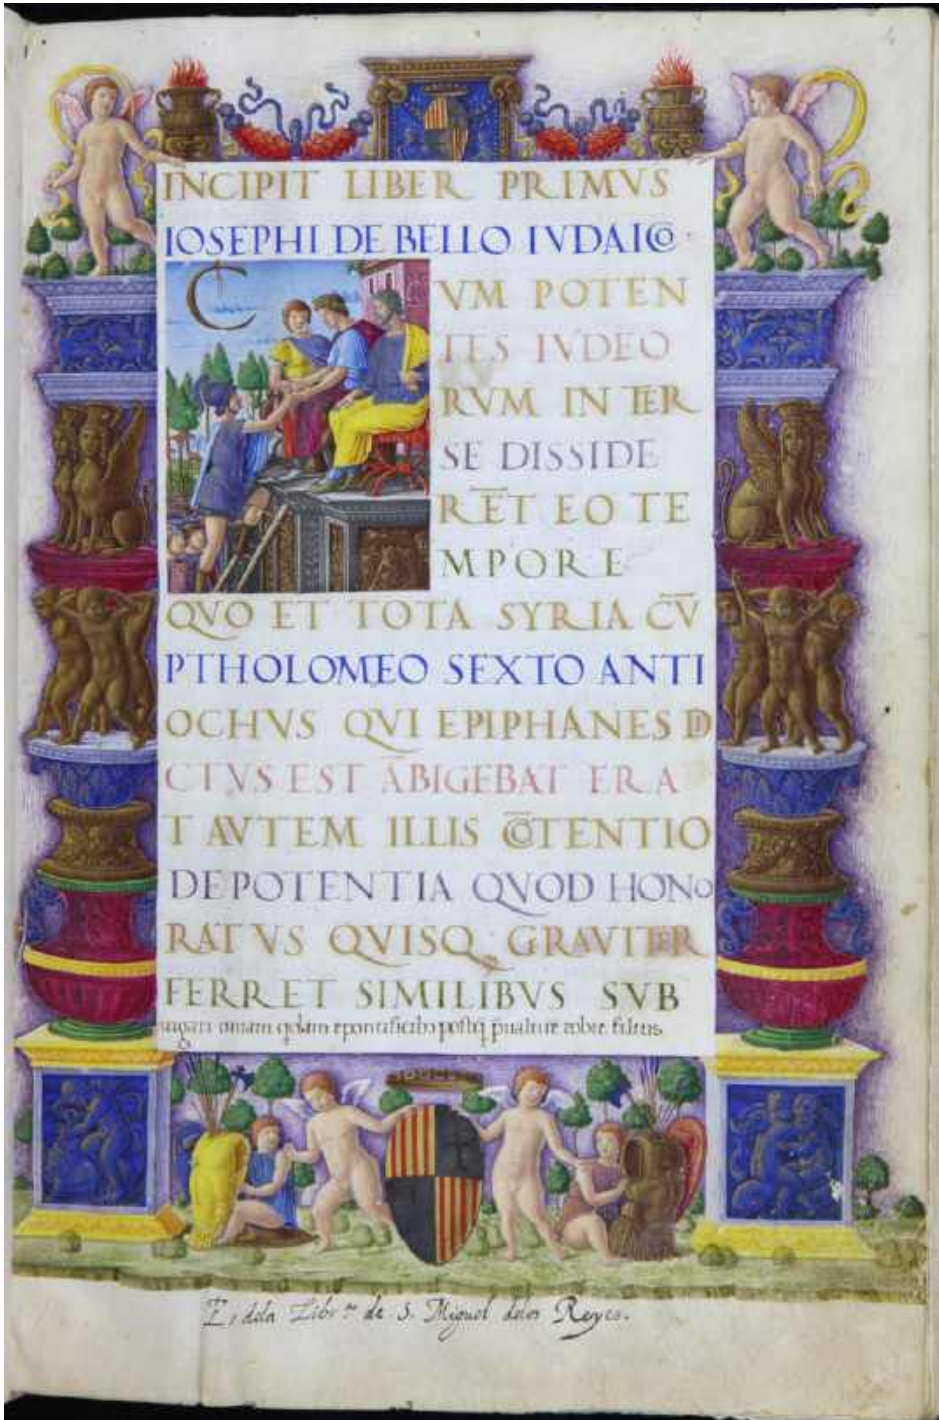 INCIPIT LIBER PRIMVS
IOSEPHI DE BELLO IVDAICO
C
VM POTEN
TES IVDEO
RVM IN TER
SE DISSIDE
RE̅T EO TE
MPORE
QVO ET TOTA SYRIA CV̅
PTHOLOMEO SEXTO ANTI
OCHVS QVI EPIPHANES DI
CTVS EST A̅BIGEBAT ERA
T AVTEM ILLIS CO̅TENTIO
DE POTENTIA QVOD HONO
RATVS QVISQ; GRAVITER
FERRET SIMILIBVS SVB
Es dela Libr.ª de S. Miguel delos Reyes.